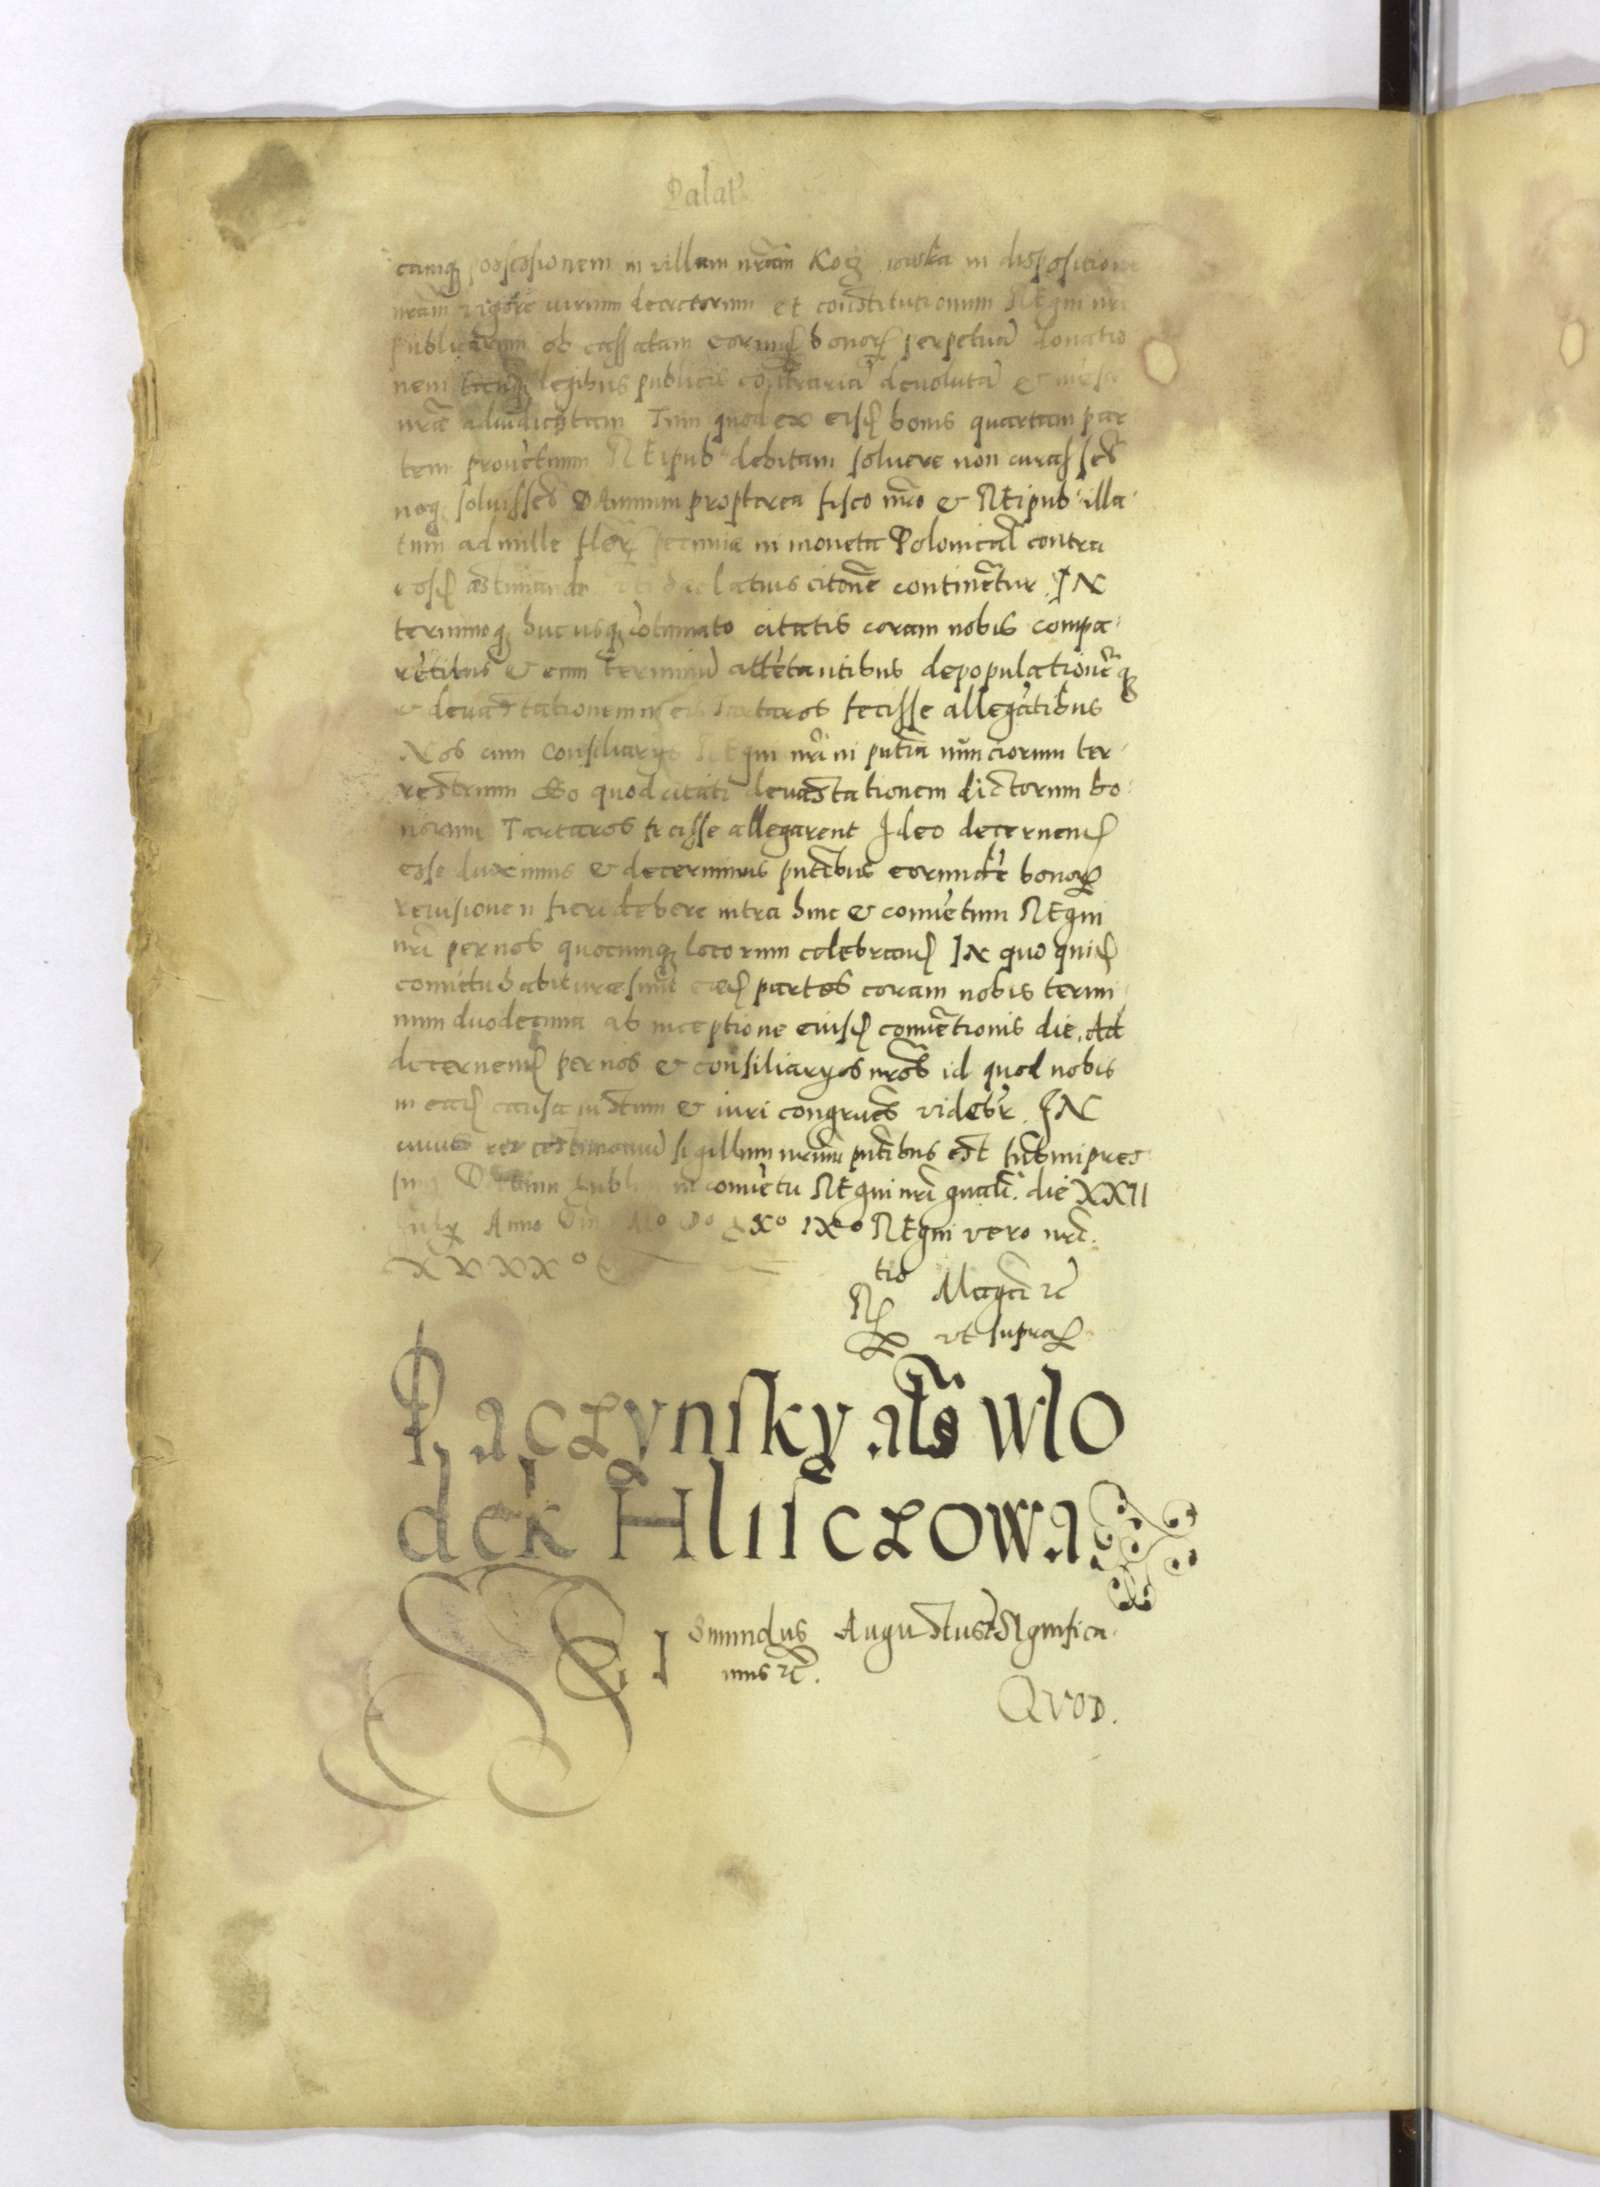 Palat
camq possessionem in villam nram in dispositione
nram vigore decretorum et constitutionum REgni nri
publicarum ob cassatam bonor perpetua donatio
nem legibus publicis contraria devoluta &
nre adiudicatam Tum quod ex eisd bonis quartam par
tem provetuum REipub debitam solvere non curass set
neq solvisset DAmnum propterea fisco nro & REipub illa
tum ad mille flor pecuniæ in moneta Polonical contra
eosd latius citone continetur. IN
terminoq hucusq citatis coram nobis compa
retibus & eum terminu attetantibus depopulationeq
& devastationem in eis Tartaros fecisse allegatibus
Nos cum Consiliarys REgni nri in putia nunciorum ter
restrium Eo quod citati devastationem dictorum bo
norum Tartaros fecisse allegarent Ideo decernend
esse duximus & decernimus putibus eorunde bonor
revisionem fieri debere intra hinc & conuetum REgni
nri per nos quocunq locorum celebrand IN quo quid
conuetu habituræ sunt eæd partes coram nobis termi
num duodecima ab inceptione eiusd conuetionis die. Ad
decernend per nos & consiliaryos nros id quod nobis
in ead causa iustum & iuri congruens videbr. IN
cuius rei testimoniu sigillum nrum putibus est subimpres
sum Datum Lublin in conuetu REgni nri gnali. die XXII
July Anno Dni Mo Do LXo IXo REgni vero nri.
XXXXo
tio
R Magci zc
ut supra
Paczynsky als Wlo
dek Hlisczowa
SIGI Smundus Augustus Significa
mus zc.
QVOD.